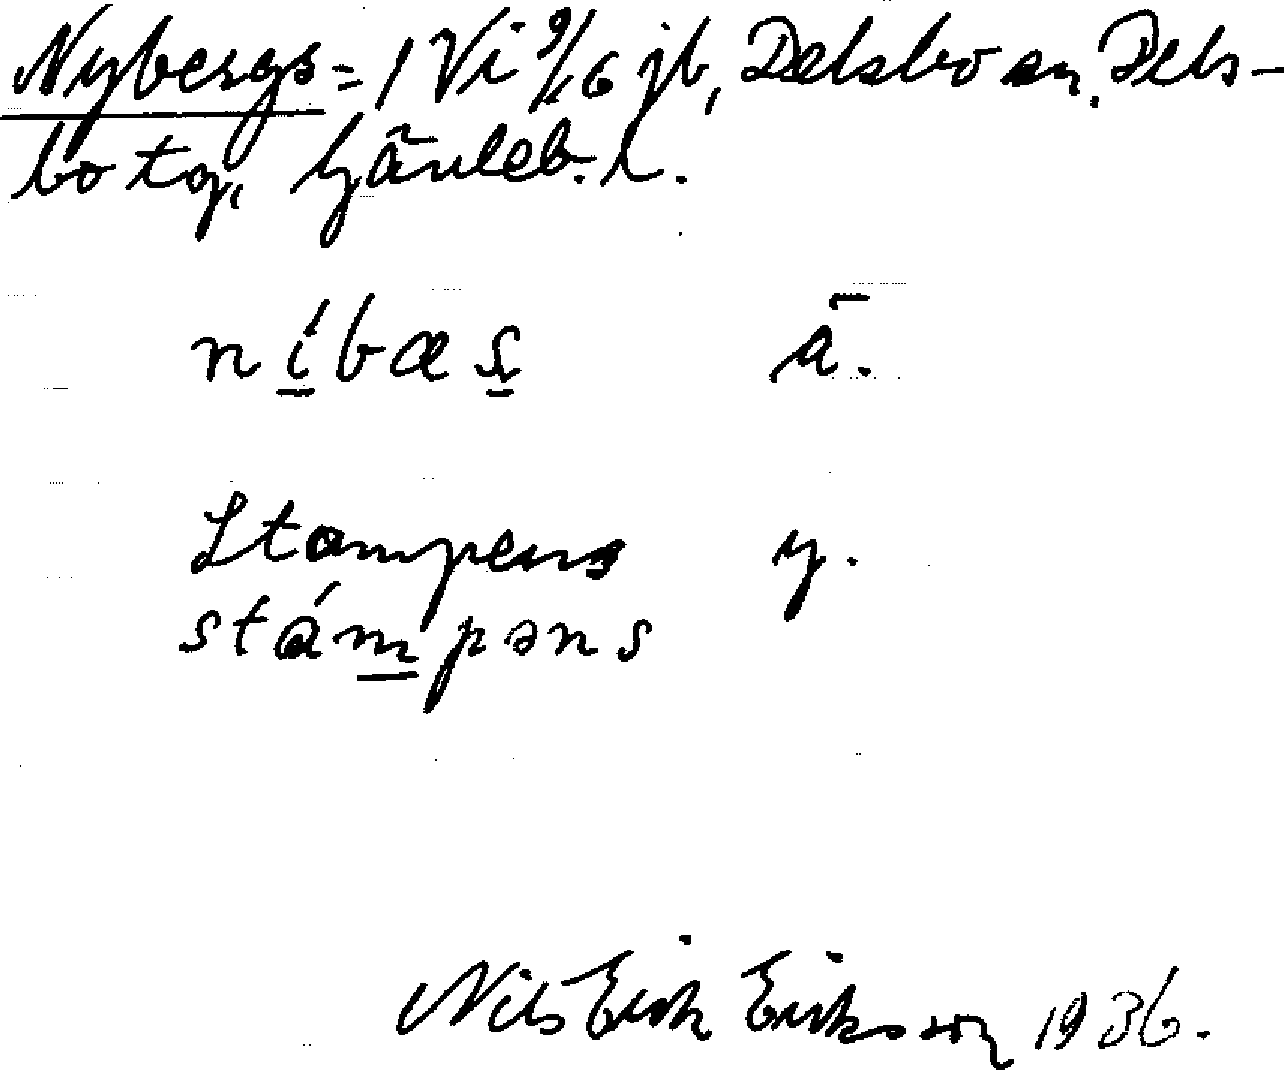 Nybergs = 1 Vi 9/16 jb, Delsbo sn. Dels-
bo tg, Gävleb. l.
níbæs ä.
Stampens y.
stámpəns
Nils Erik Eriksson 1936.